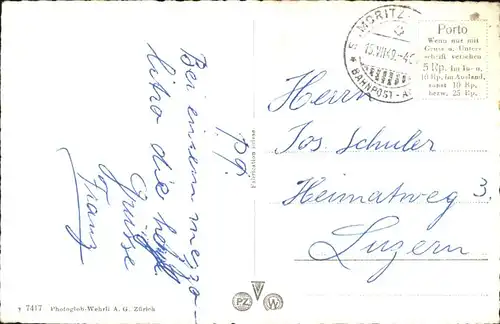 p.p.
Bei einem mezzo-
litro die herzl.
Grüsse
Franz
Porto
Wenn nur mit
Gruss u. Unter-
schrift versehen
5 Rp. im In- u.
10 Rp. im Ausland,
sonst 10 Rp.
bezw. 25 Rp.
S. MORITZ
BAHNPOST-A
Herrn
Jos. Schuler
Heimatweg 3.
Luzern
7417 Photoglob-Wehrli A. G. Zürich
PZ
W